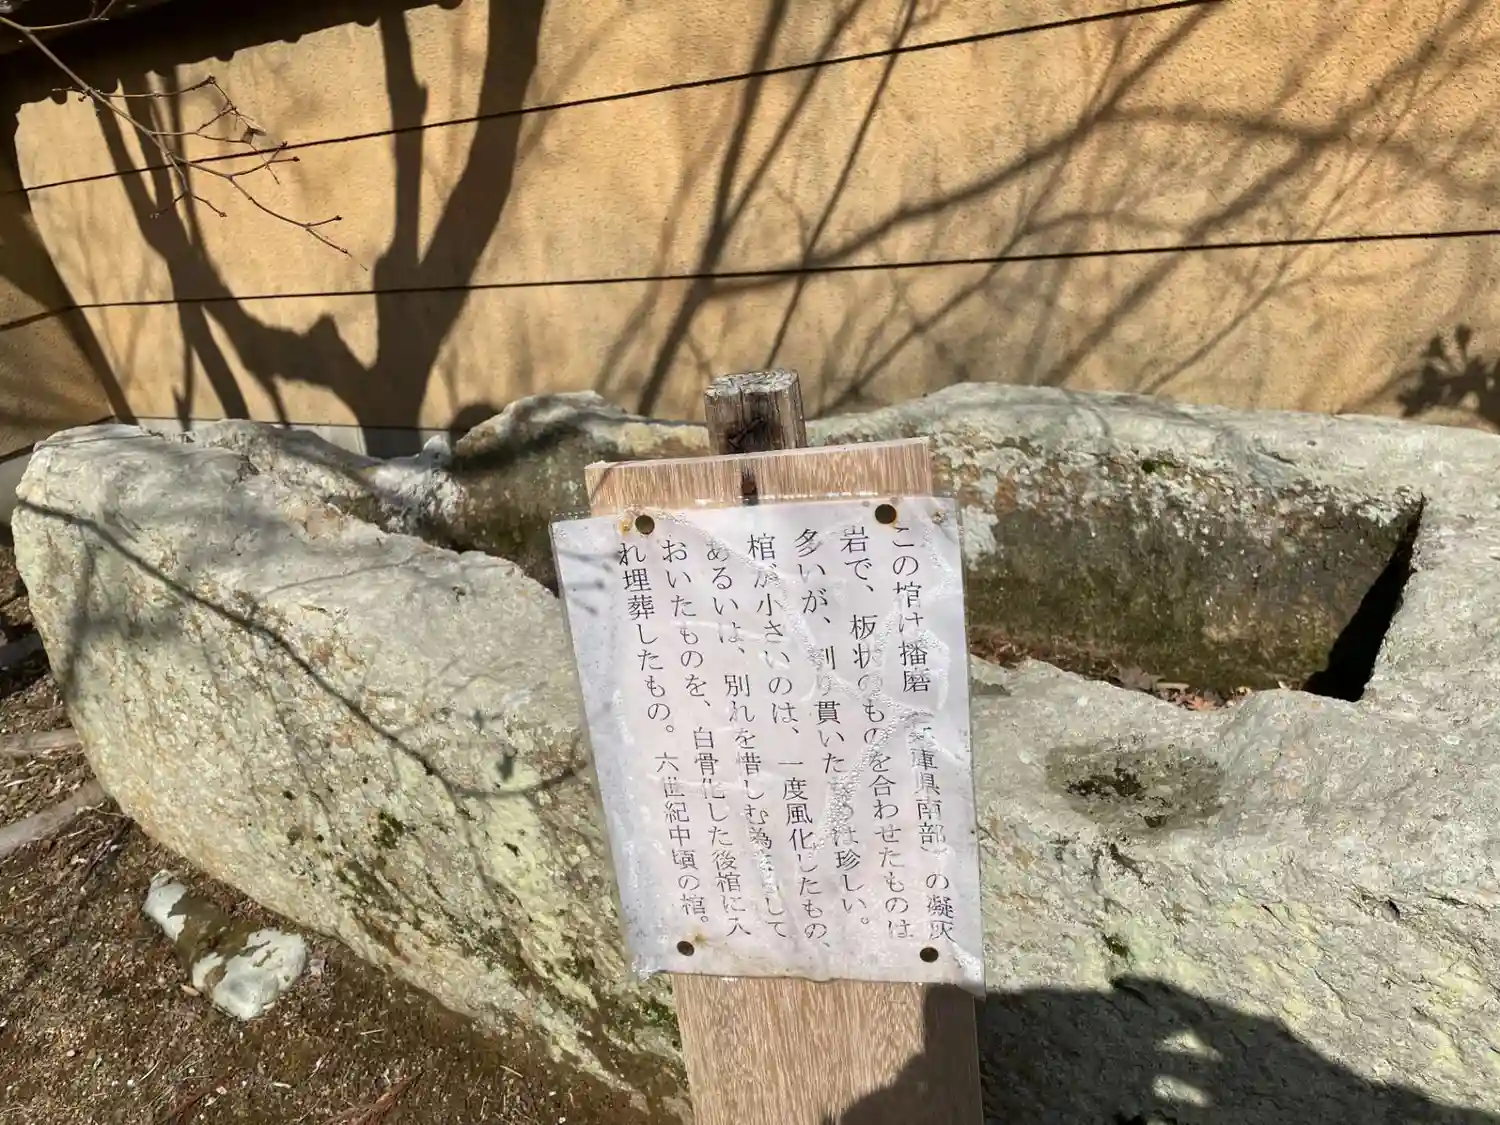 この棺は播磨（兵庫県南部）の凝灰
岩で、板状のものを合わせたものは
多いが、刳り貫いたものは珍しい。
棺が小さいのは、一度風化したもの、
あるいは、別れを惜しむ為にして
おいたものを、白骨化した後棺に入
れ埋葬したもの。六世紀中頃の棺。